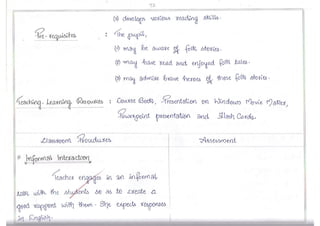 (v) develops various reading skills.
Pre-requisites : The pupil,
(i) may be aware of folk stories.
(ii) may have read and enjoyed folk tales.
(iii) may admire brave heroes of those folk stories.
Teaching-Learning Resources : Course Book, Presentation on Windows Movie Maker,
Powerpoint presentation and Flash Cards.
Classroom Procedures Assessment
* Informal Interaction
Teacher engages in an informal
talk with the students so as to create a
good rapport with them. She expects responses
in English.